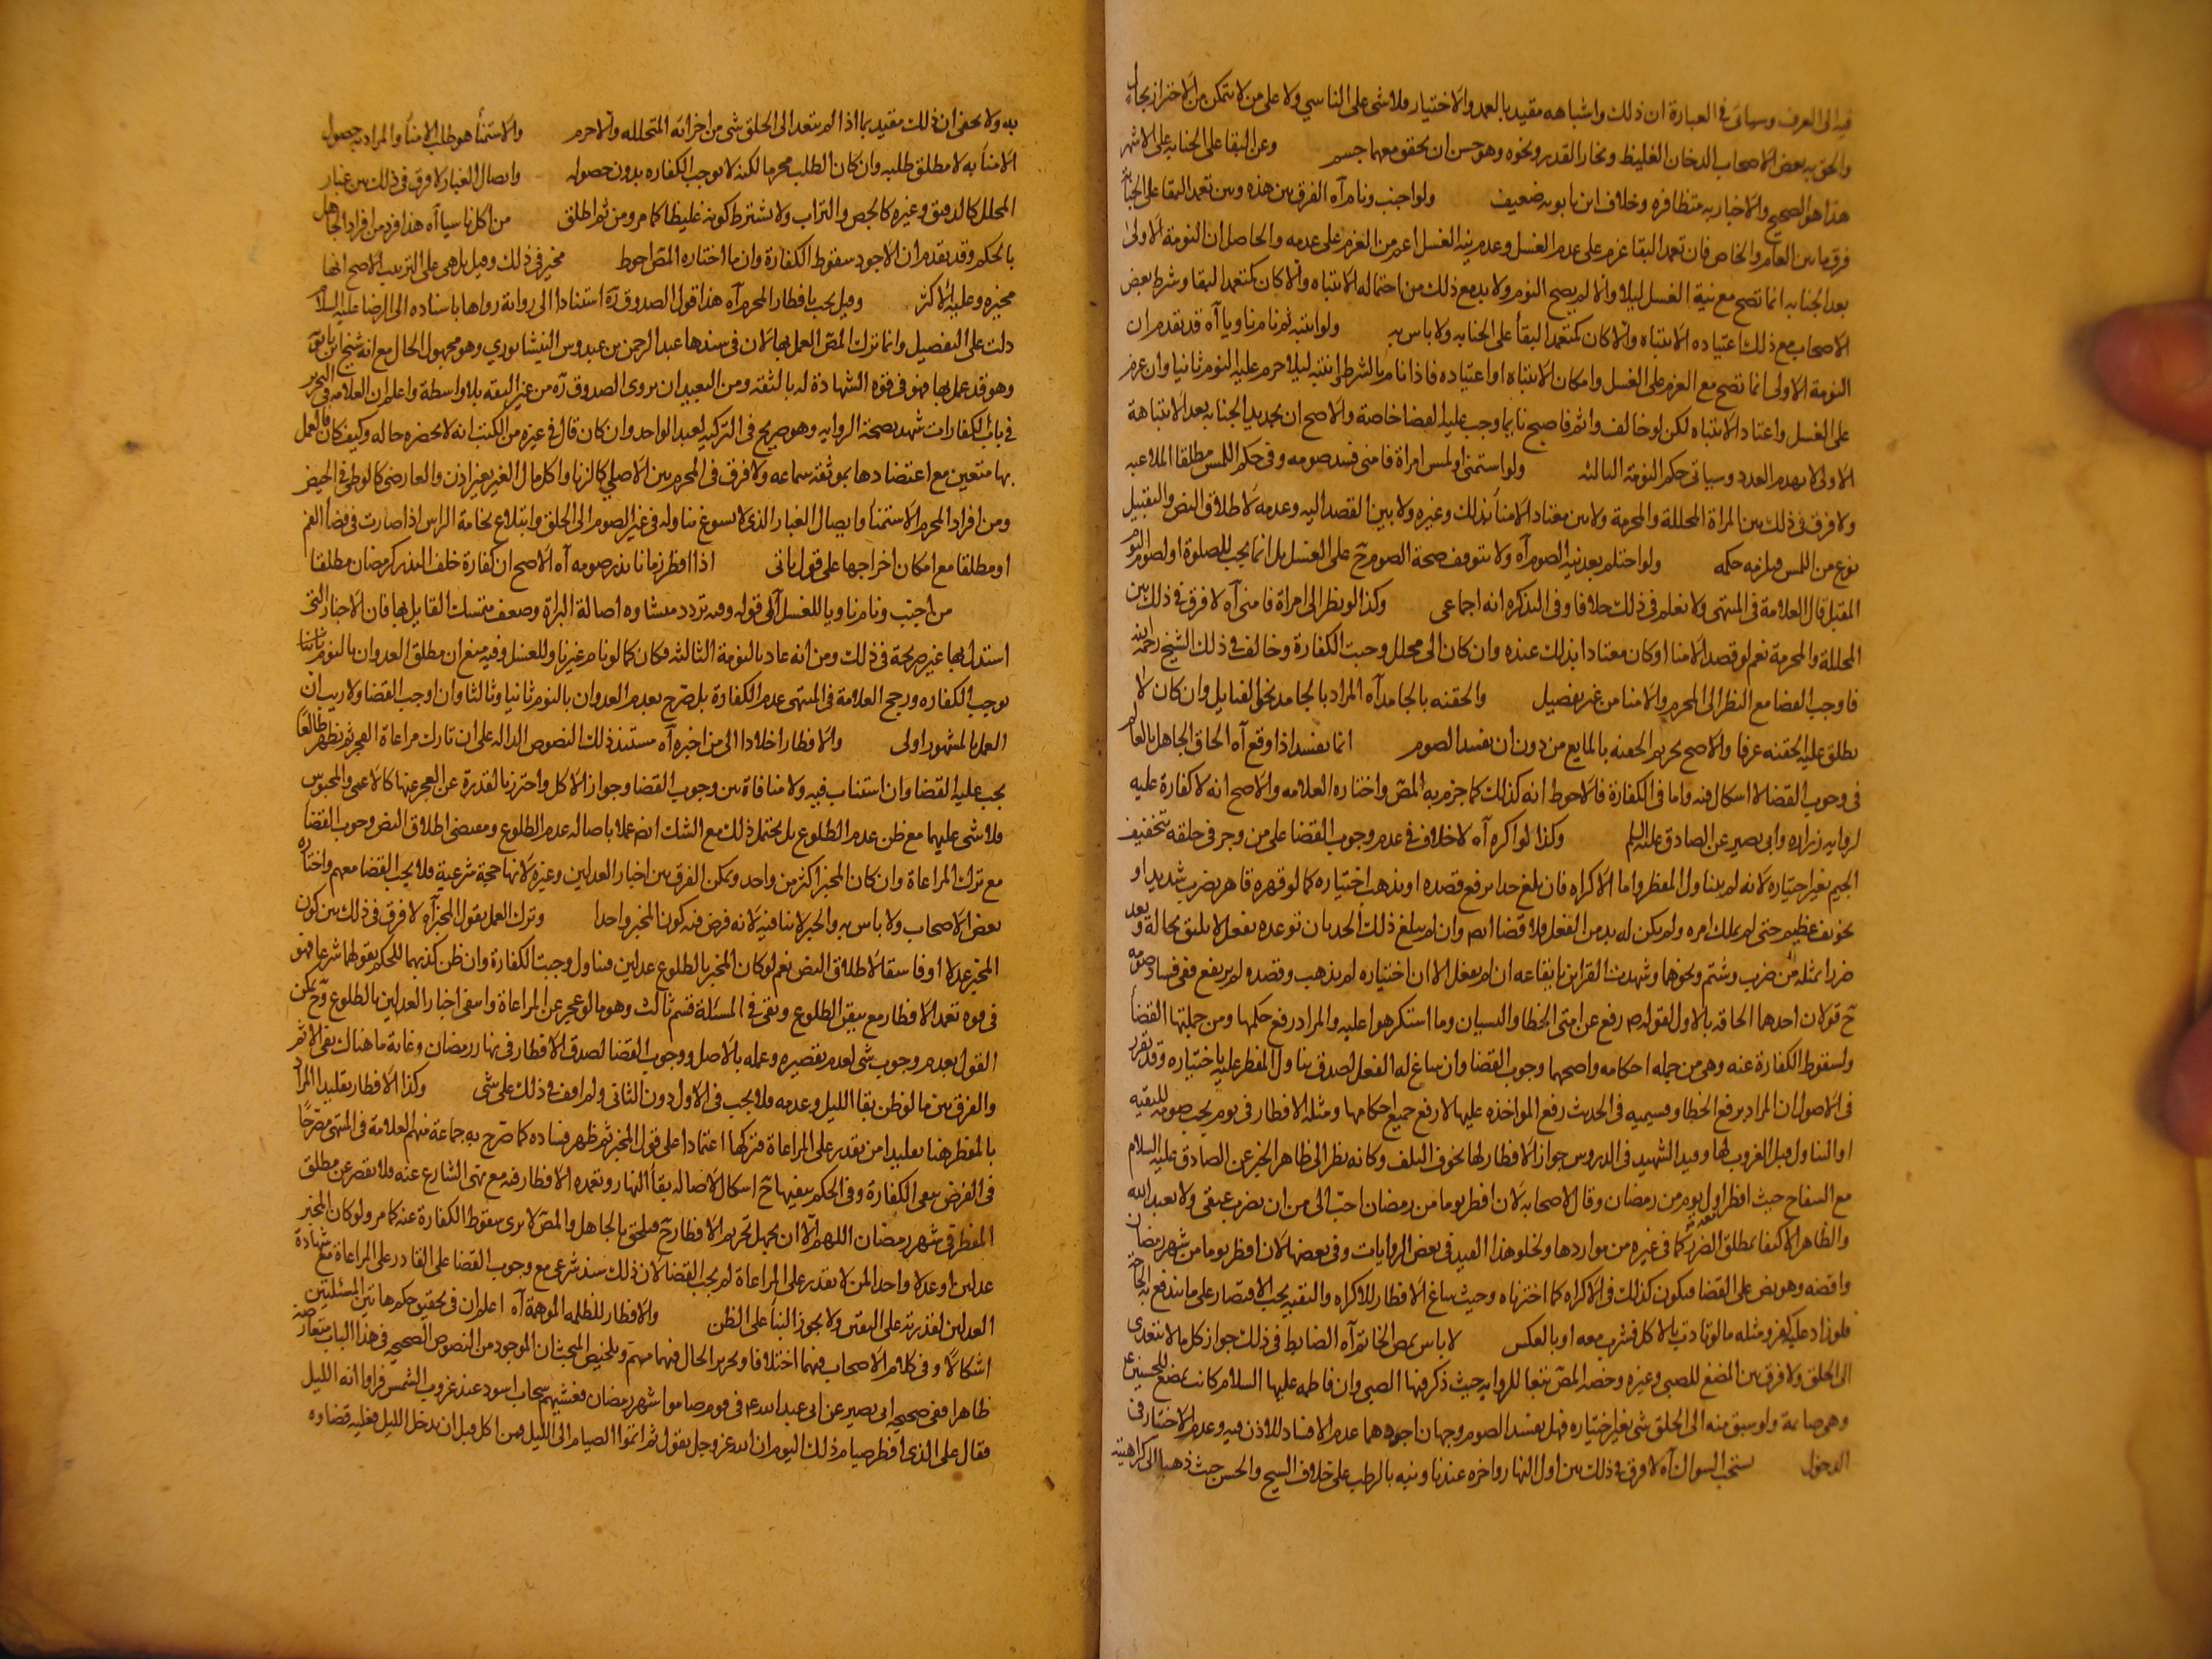 فيه الى العرف وسياتى فى العبارة ان ذلك واشباهه مقيد بالعمد والاختيار فلا شى على الناسي ولا على من لا يتمكن من الاحتراز بحال
والحق به بعض الاصحاب الدخان الغليظ وبخار القدر ونحوه وهو حسن ان تحقق معهما جسم وعن البقا على الجنابه على الاشهر
هذا هو الصحيح والاخبار به متظافره وخلاف ابن بابويه ضعيف ولو اجنب ونام آه الفرق بين هذه وبين تعمد البقا على الجنابة
فرق ما بين العام والخاص فان تعمد البقا عزم على عدم الغسل وعدم نية الغسل اعم من العزم على عدمه والحاصل ان النومة الاولى
بعد الجنابه انما تصح مع نية الغسل ليلا والا لم يصح النوم ولا بد مع ذلك من احتماله الانتباه والا كان كمتعمد البقا وشرط بعض
الاصحاب مع ذلك اعتياده الانتباه والا كان كمتعمد البقا على الجنابه ولا باس به ولو انتبه ثم نام ناويا آه قد تقدم ان
النومة الاولى انما تصح مع العزم على الغسل وامكان الانتباه او اعتياده فاذا نام بالشرط انتبه ليلا حرم عليه النوم ثانيا وان عزم
على الغسل واعتاد الانتباه لكن لو خالف واثم فاصبح نايما وجب عليه القضا خاصة والاصح ان تجديد الجنابه بعد الانتباهة
الاولى لا يهدم العدد وسياتى حكم النومة الثالثه ولو استمنى او لمس امراة فامنى فسد صومه وفى حكم اللمس مطلقا الملاعبه
ولا فرق فى ذلك بين المراة المحللة والمحرمة ولا بين معتاد الامنا بذلك وغيره ولا بين القصد اليه وعدمه لاطلاق النص والتقبيل
نوع من اللمس فيلزمه حكمه ولو احتلم بعد نية الصوم آه ولا يتوقف صحة الصوم ح على الغسل بل انما يجب للصلوة او لصوم اليوم
المقبل قال العلامة فى المنتهى ولا نعلم فى ذلك خلافا وفى التذكره انه اجماعى وكذا لو نظر الى امراة فامنى آه لا فرق فى ذلك بين
المحللة والمحرمة نعم لو قصد الامنا او كان معتادا بذلك عنده وان كان الى محلل وجبت الكفارة وخالف فى ذلك الشيخ رحمه الله
فاوجب القضا مع النظر الى المحرم والامنا من غير تفصيل والحقنه بالجامد آه المراد بالجامد نحو الفتايل وان كان لا
يطلق عليه الحقنه عرفا والاصح تحريم الحقنه بالمايع من دون ان يفسد الصوم انما يفسد اذا وقع آه الحاق الجاهل بالعالم
فى وجوب القضا لا اشكال فيه واما فى الكفارة فالاحوط انه كذلك كما جزم به المص واختاره العلامه والاصح انه لا كفارة عليه
لروايه زراره وابى بصير عن الصادق عليه السلم وكذا لو اكره آه لا خلاف فى عدم وجوب القضا على من وجر فى حلقه بتخفيف
الجيم بغير اختياره لانه لم يتناول المفطر واما الاكراه فان بلغ حدا يرفع قصده او يذهب اختياره كما لو قهره قاهر بضرب شديد او
تخويف عظيم حتى لم يملك امره ولم يكن له بد من الفعل فلا قضا ايضا وان لم يبلغ ذلك الحد بان توعده بفعل لا يليق بحاله او يعد
ضررا بمثله من ضرب وشتم ونحوهما وشهدت القراين بايقاعه ان لم يفعل الا ان اختياره لم يذهب وقصده لم يرتفع ففى فساد صومه
ح قولان احدهما الحاقه بالاول لقوله ص رفع عن امتى الخطا والنسيان وما استكرهوا عليه والمراد رفع حكمها ومن جملتها القضا
ولسقوط الكفارة عنه وهى من جمله احكامه واصحهما وجوب القضا وان ساغ له الفعل لصدق تناول المفطر عليه باختياره وقد تقرر
فى الاصول ان المراد برفع الخطا وقسيميه فى الحديث رفع المواخذه عليها لا رفع جميع احكامها ومثله الافطار فى يوم يجب صومه للتقيه
او التناول قبل الغروب لها وقيد الشهيد فى الدروس جواز الافطار لها بخوف التلف وكانه نظر الى ظاهر الخبر عن الصادق عليه السلام
مع السفاح حيث افطر اول يوم من رمضان وقال لاصحابه لان افطر يوما من رمضان احب الى من ان يضرب عنقى ولا يعبد الله
والظاهر الاكتفا بمطلق الضرر كما فى غيره من مواردها ولخلو هذا القيد فى بعض الروايات وفى بعضها لان افطر يوما من شهر رمضان
واقضه وهو نص على القضا فيكون كذلك فى الاكراه كما اخترناه وحيث ساغ الافطار للاكراه والتقيه يجب الاقتصار على ما يندفع به الحاجة
فلو زاد عليه كفر ومثله ما لو تادت بالاكل فشرب معه او بالعكس لا باس بمص الخاتم آه الضابط فى ذلك جواز كل ما لا يتعدى
الى الحلق ولا فرق بين المضغ للصبى وغيره وخصه المص تبعا للروايه حيث ذكر فيها الصبى وان فاطمه عليها السلام كانت تمضغ للحسنين ع
وهى صايمة ولو سبق منه الى الحلق شى بغير اختياره فهل يفسد الصوم وجهان اجودهما عدم الافساد للاذن فيه وعدم الاختيار فى
الدخول يستحب السواك آه لا فرق فى ذلك بين اول النهار واخره عندنا ونبه بالرطب على خلاف الشيخ والحسن حيث ذهبا الى كراهيته
به ولا يخفى ان ذلك مقيد بما اذا لم يتعد الى الحلق شى من اجزائه المتحلله والا حرم والاستمنا هو طلب الامنا والمراد به حصول
الامنا به لا مطلق طلبه وان كان الطلب محرما لكنه لا يوجب الكفاره بدون حصوله وايصال الغبار لا فرق فى ذلك بين غبار
المحلل كالدقيق وغيره كالجص والتراب ولا يشترط كونه غليظا كما مر ومن ثم اطلق من اكل ناسيا آه هذا فرد من افراد الجاهل
بالحكم وقد تقدم ان الاجود سقوط الكفارة وان ما اختاره المص احوط مخير فى ذلك وقيل بل هى على الترتيب الاصح انها
مخيره وعليه الاكثر وقيل يجب بافطار المحرم آه هذا قول الصدوق ره استنادا الى رواية رواها باسناده الى الرضا عليه السلام
دلت على التفصيل وانما ترك المص العمل بها لان فى سندها عبد الرحمن بن عبدوس النيشابوري وهو مجهول الحال مع انه شيخ ابن بابويه
وهو قد عمل بها فهو فى قوة الشهادة له بالثقة ومن البعيد ان يروى الصدوق ره من غير الثقه بلا واسطة واعلم ان العلامه فى التحرير
فى باب الكفارات شهد بصحة الروايه وهو صريح فى التزكيه لعبد الواحد وان كان قال فى غيره من الكتب انه لا يحضره حاله وكيف كان فالعمل
بها متعين مع اعتضادها بموثقة سماعه ولا فرق فى المحرم بين الاصلي كالزنا واكل مال الغير بغير اذن والعارضى كالوطى فى الحيض
ومن افراد المحرم الاستمنا وايصال الغبار الذى لا يسوغ تناوله فى غير الصوم الى الحلق وابتلاع نخامة الراس اذا صارت فى فضا الفم
او مطلقا مع امكان اخراجها على قول ياتى اذا افطر زمانا نذر صومه آه الاصح ان كفارة خلف النذر كرمضان مطلقا
من اجنب ونام ناويا للغسل آلى قوله وفيه تردد منشاوه اصالة البراة وضعف متمسك القايل بها فان الاخبار التى
استدل بها غير صريحة فى ذلك ومن انه عاد بالنومة الثالثه فكان كما لو نام غير ناو للغسل وفيه منع ان مطلق العدوان بالنوم ثانيا
يوجب الكفاره ورجح العلامة فى المنتهى عدم الكفارة بل صرح بعدم العدوان بالنوم ثانيا وثالثا وان اوجب القضا ولا ريب ان
العمل بالمشهور اولى والافطار اخلادا الى من اخبره آه مستند ذلك النصوص الداله على ان تارك مراعاة الفجر ثم يظهر طالعا
يجب عليه القضا وان استناب فيه ولا منافاة بين وجوب القضا وجواز الاكل واحترز بالقدرة عن العجز عنها كالاعمى والمحبوس
فلا شى عليهما مع ظن عدم الطلوع بل يحتمل ذلك مع الشك ايضا عملا باصاله عدم الطلوع ومقتضى اطلاق النص وجوب القضا
مع ترك المراعاة وان كان المخبر اكثر من واحد ويمكن الفرق بين اخبار العدلين وغيره لانها حجة شرعية فلا يجب القضا معهم واختاره
بعض الاصحاب ولا باس به والخبر لا ينافيه لانه فرض فيه كون المخبر واحدا وترك العمل بقول المخبر آه لا فرق فى ذلك بين كون
المخبر عدلا او فاسقا لاطلاق النص نعم لو كان المخبر بالطلوع عدلين فتناول وجبت الكفارة وان ظن كذبهما للحكم بقولهما شرعا فهو
فى قوه تعمد الافطار مع تيقن الطلوع وبقى فى المسئلة قسم ثالث وهو ما لو عجز عن المراعاة وانتفى اخبار العدلين بالطلوع وح يمكن
القول بعدم وجوب شى لعدم تقصيره وعمله بالاصل ووجوب القضا لصدق الافطار فى نهار رمضان وغاية ما هناك نفى الاثم
والفرق بين ما لو ظن بقا الليل وعدمه فلا يجب فى الاول دون الثانى ولم اقف فى ذلك على شى وكذا الافطار تقليدا المراد
بالمفطر هنا تقليدا من يقدر على المراعاة فتركها اعتمادا على قول المخبر ثم ظهر فساده كما صرح به جماعة منهم العلامة فى المنتهى مصرحا
فى الفرض بنفى الكفارة وفى الحكم بنفيها ح اشكال لاصاله بقا النهار وتعمده الافطار فيه مع نهى الشارع عنه فلا يقصر عن مطلق
المفطر فى شهر رمضان اللهم الا ان يجهل تحريم الافطار ح فيلحق بالجاهل والمص لا يرى سقوط الكفارة عنه كما مر ولو كان المخبر
عدلين او عدلا واحدا لمن لا يقدر على المراعاة لم يجب القضا لان ذلك سند شرعى مع وجوب القضا على القادر على المراعاة مع شهادة
العدلين لقدرته على اليقين ولا يجوز البنا على الظن والافطار للظلمه الموهمة آه اعلم ان فى تحقيق حكم هاتين المسئلتين
اشكالا وفى كلام الاصحاب فيهما اختلافا وتحرير الحال فيهما مهم وتلخيص المبحث ان الموجود من النصوص الصحيحه فى هذا الباب متعارضة
ظاهرا ففى صحيحه ابى بصير عن ابى عبد الله ع فى قوم صاموا شهر رمضان فغشيهم سحاب اسود عند غروب الشمس فراوا انه الليل
فقال على الذى افطر صيام ذلك اليوم ان الله عز وجل يقول ثم اتموا الصيام الى الليل فمن اكل قبل ان يدخل الليل فعليه قضاوه